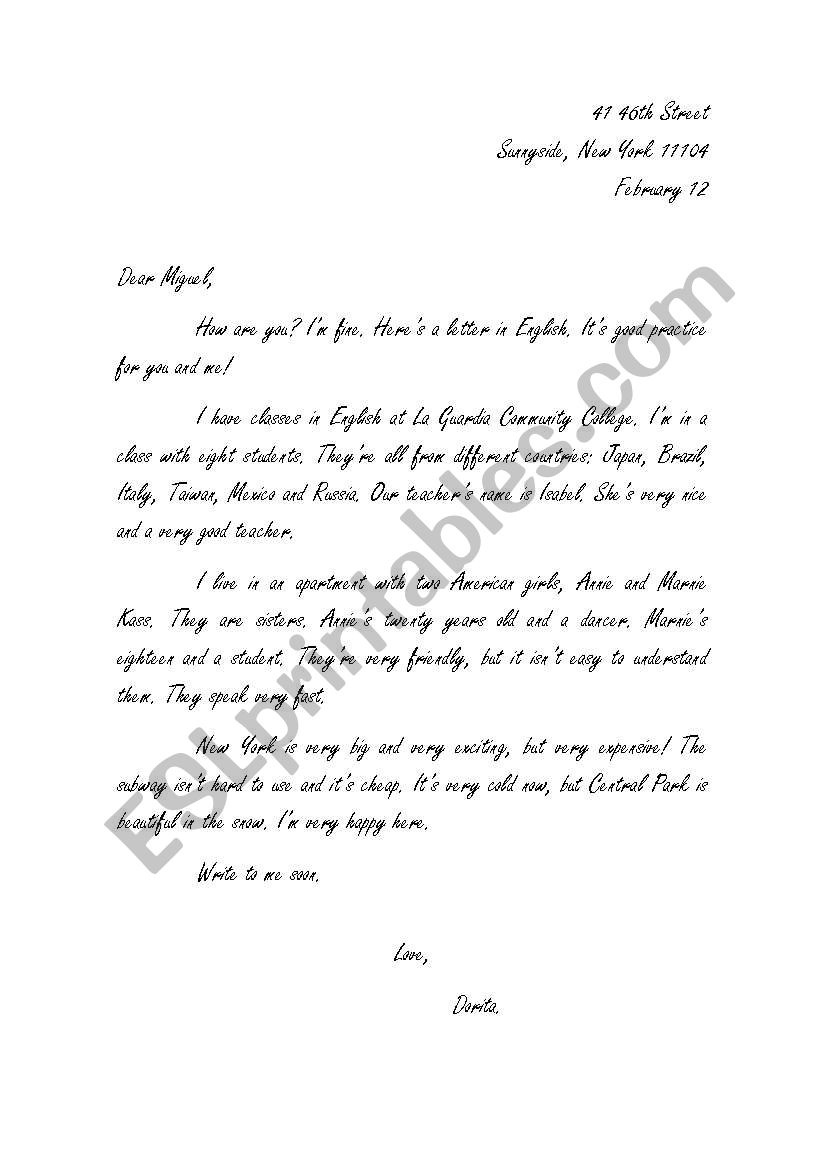 41 46th Street
Sunnyside, New York 11104
February 12
Dear Miguel,
How are you? I'm fine. Here's a letter in English. It's good practice
for you and me!
I have classes in English at La Guardia Community College. I'm in a
class with eight students. They're all from different countries: Japan, Brazil,
Italy, Taiwan, Mexico and Russia. Our teacher's name is Isabel. She's very nice
and a very good teacher.
I live in an apartment with two American girls, Annie and Marnie
Kass. They are sisters. Annie's twenty years old and a dancer. Marnie's
eighteen and a student. They're very friendly, but it isn't easy to understand
them. They speak very fast.
New York is very big and very exciting, but very expensive! The
subway isn't hard to use and it's cheap. It's very cold now, but Central Park is
beautiful in the snow. I'm very happy here.
Write to me soon.
Love,
Dorita.
ESLprintables.com